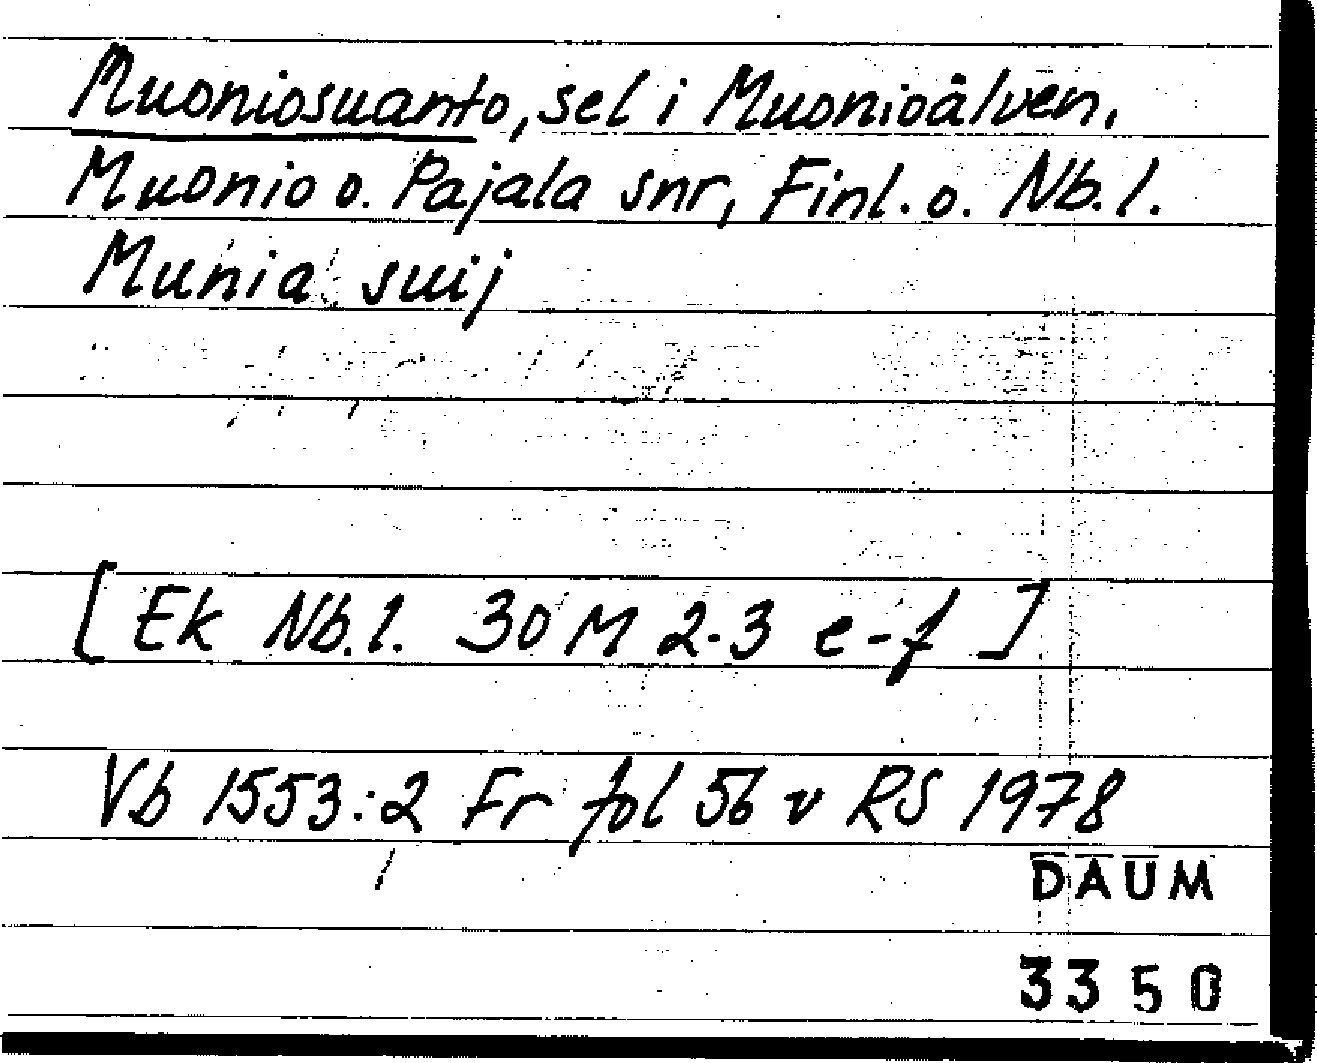 Muoniosuanto, sel i Muonioälven.
Muonio o. Pajala snr, Finl. o. Nb. l.
Munia suij
[ Ek Nb. l. 30 M 2-3 e-f ]
Vb 1553:2 Fr fol 56 v RS 1978
DAUM
3350